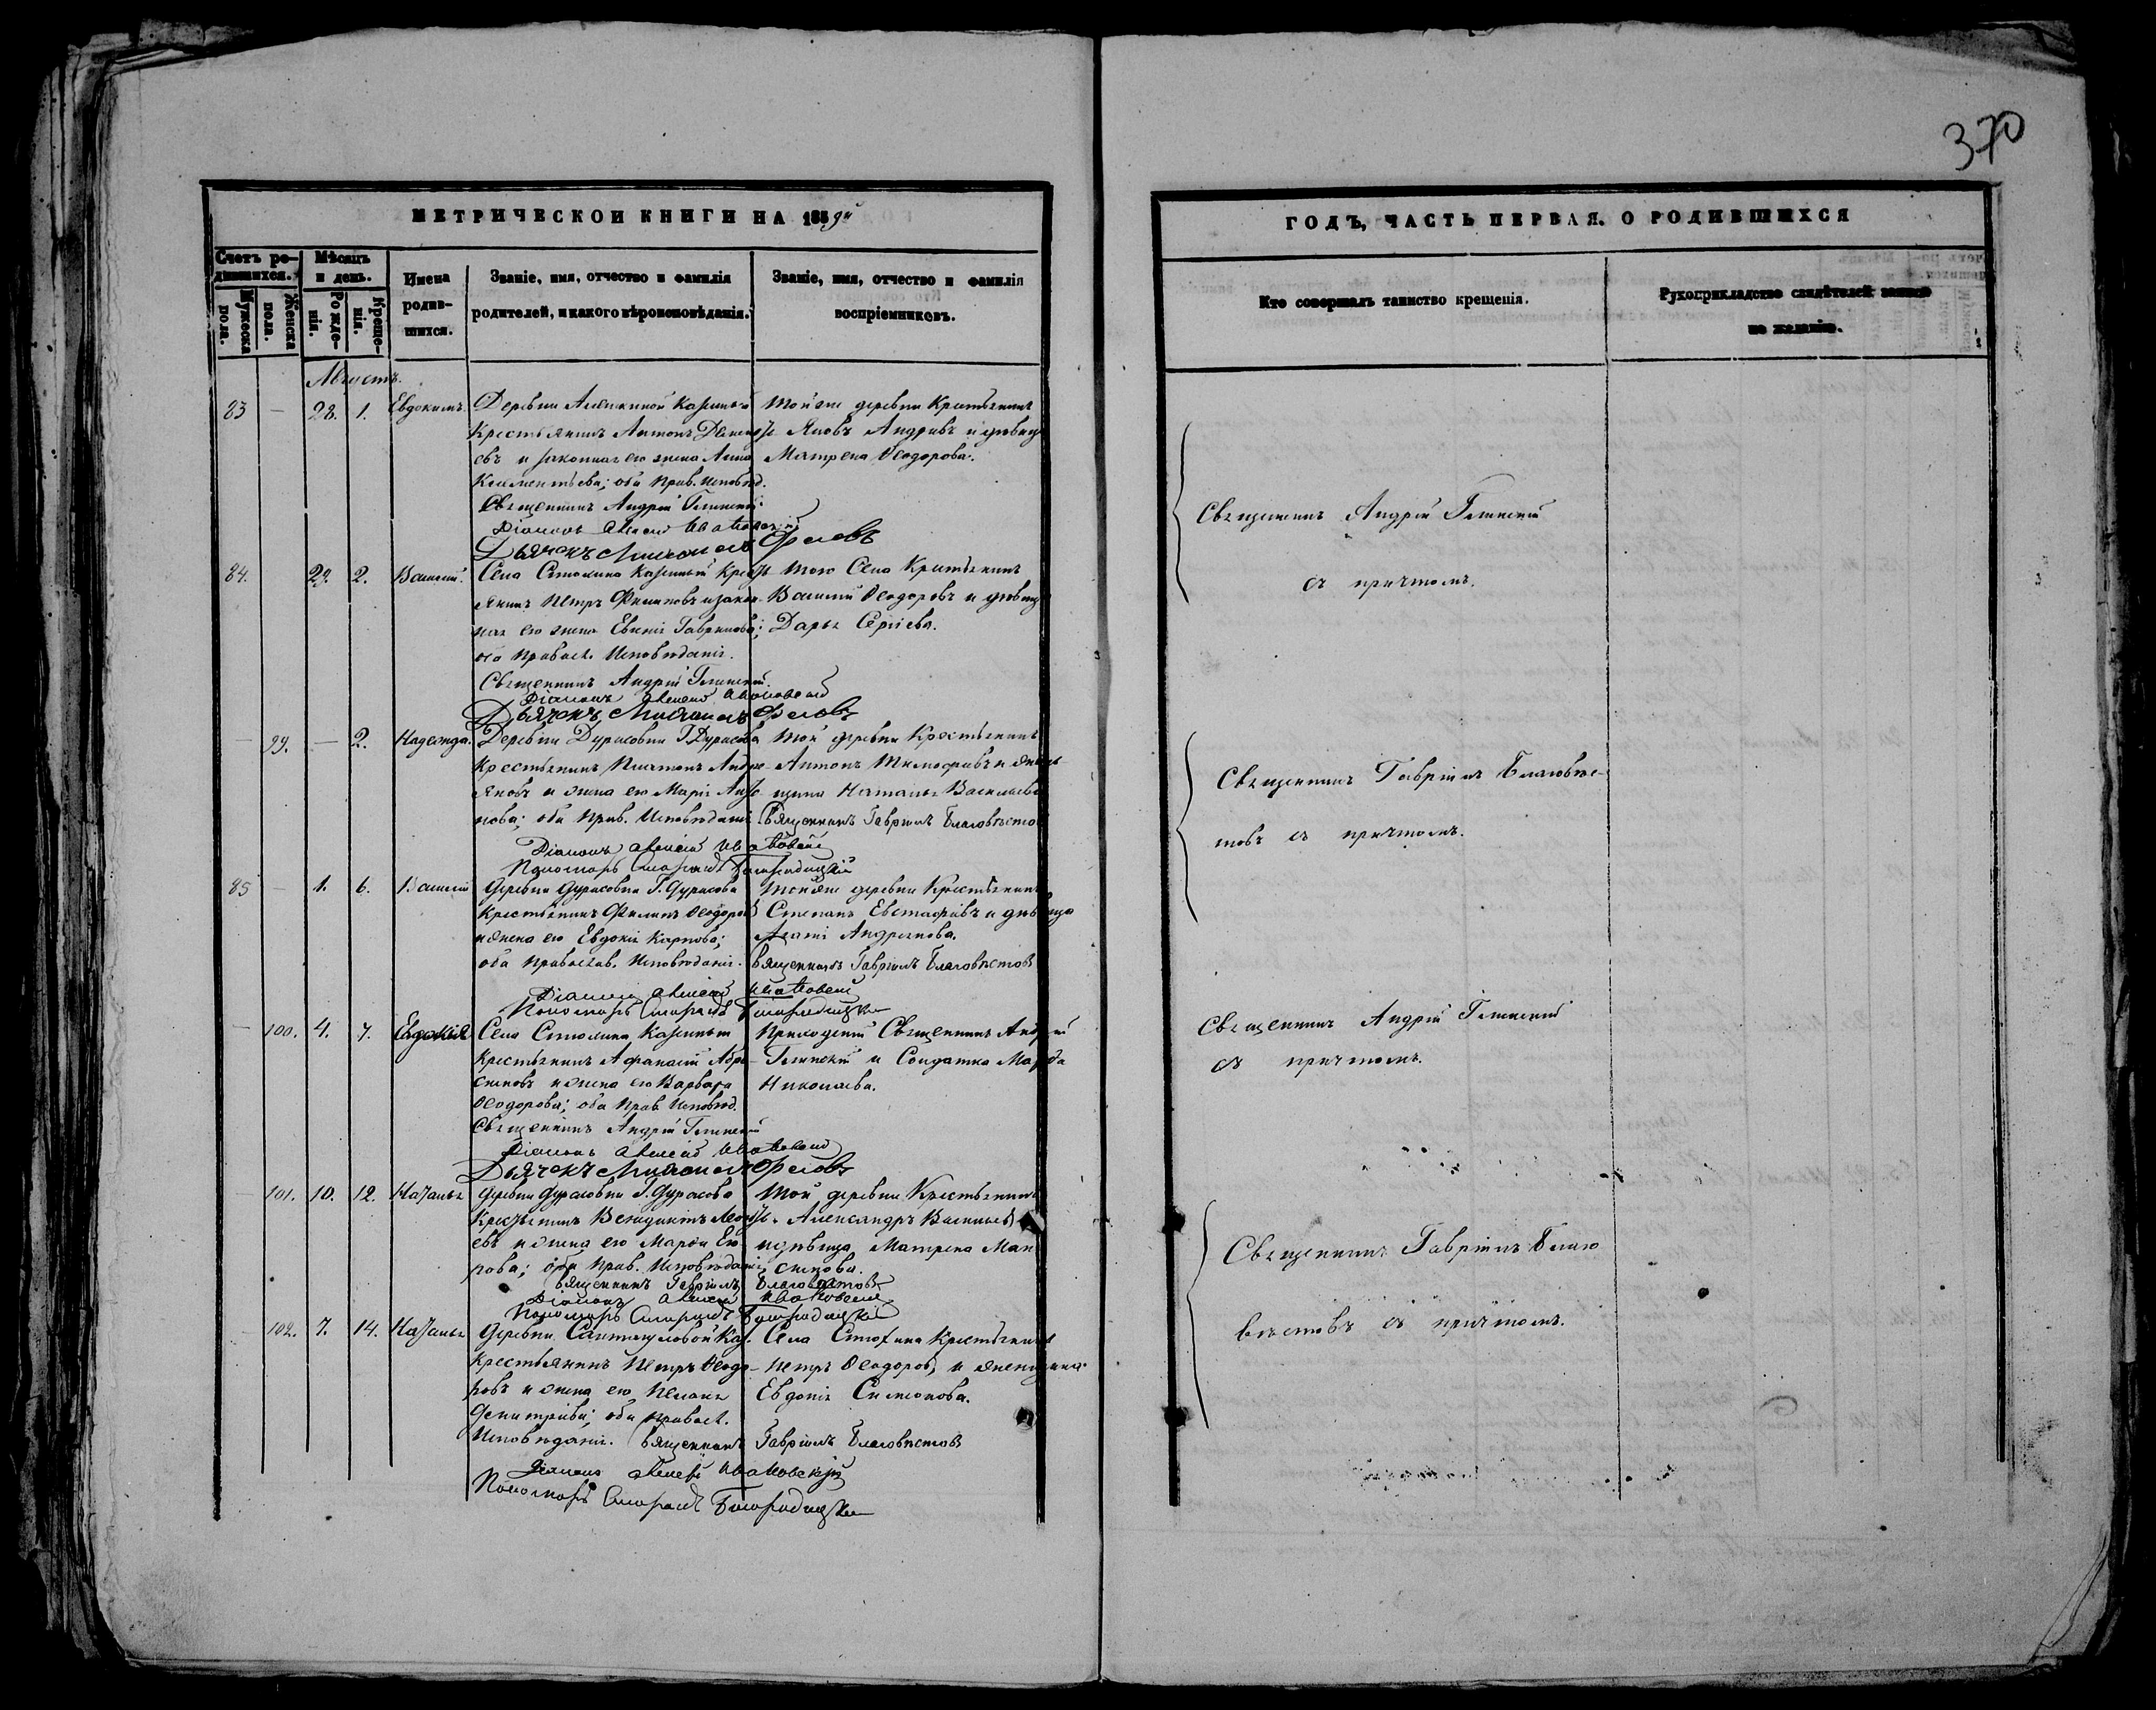 370
МЕТРИЧЕСКОЙ КНИГИ НА 1859й
Счетъ ро-
дившихся.
Мѣсяцъ
и день.
Имена
родив-
шихся.
Званіе, имя, отчество и фамилія
родителей, и какого вѣроисповѣданія.
Званіе, имя, отчество и фамилія
воспріемниковъ.
Мужеска
пола.
Женска
пола.
Рожде-
нія.
Креще-
нія.
Августъ.
83 — 28. 1. Евдокимъ.
Деревни
Крестьянинъ Антонъ
евъ и законная его жена Анна
Климентьева; оба прав. исповѣд.
Священникъ Андрей Глинскій
Діаконъ Алексій
Дьячекъ Михаилъ Орловъ
Той же деревни Крестьянинъ
Яковъ Андреевъ и дѣвица
Матрена Ѳеодорова.
84. 29. 2. Василій.
Села Столипина Казенный Кресть
янинъ Петръ Филиповъ и закон
ная его жена Евгенія Гаврилова;
оба Правосл. Исповѣданія.
Священникъ Андрей Глинскій.
Діаконъ Алексій
Дьячекъ Михаилъ Орловъ
Того Села Крестьянинъ
Василій Ѳеодоровъ и дѣвица
Дарья Сергіева.
— 99. — 2. Надежда.
Деревни Дурасовки Г. Дурасова
Крестьянинъ Платонъ Андре
яновъ и жена его Марія Анто
нова; оба Прав. Исповѣданія
Діаконъ Алексій
Пономарь Смарагдъ Богородицкій
Той деревни Крестьянинъ
Антонъ Тимофеевъ и женъ
щина Наталья Васильева
Священникъ Гавріилъ Благовѣстовъ
85 — 1. 6. Василій
Деревни Дурасовки Г. Дурасова
Крестьянинъ Филипъ Ѳеодоровъ
и жена его Евдокія Карпова;
оба Православ. Исповѣданія.
Діаконъ Алексій
Пономарь Смарагдъ Богородицкій
Той же деревни Крестьянинъ
Степанъ Евстафіевъ и дѣвица
Агафія Андреянова.
Священникъ Гавріилъ Благовѣстовъ
— 100. 4. 7. Евдокія
Села Столипина Казенный
Крестьянинъ Афанасій Абра
симовъ и жена его Варвара
Ѳеодорова; оба Прав. Исповѣд.
Священникъ Андрей Глинскій
Діаконъ Алексій
Дьячекъ Михаилъ Орловъ
Приходскій Священникъ Андрей
Глинскій и Солдатка Марфа
Николаева.
101. 10. 12. Наталья
Деревни Дурасовки Г. Дурасова
Крестьянинъ Венедиктъ Леонть
евъ и жена его Марфа Его
рова; оба Прав. Исповѣданія
Священникъ Гавріилъ Благовѣстовъ
Діаконъ Алексій
Пономарь Смарагдъ Богородицкій
Той деревни Крестьянинъ
Александръ Васильевъ
и дѣвица Матрена Мак
симова.
102. 7. 14. Наталья
Деревни Каз.
Крестьянинъ Петръ Ѳеодо-
ровъ и жена его Пелагея
Димитріева; оба Правосл.
Исповѣданія. Священникъ Гавріилъ Благовѣстовъ
Діаконъ Алексій
Пономарь Смарагдъ Богородицкій
Села Столипина Крестьянинъ
Петръ Ѳеодоровъ и женщина
Евдокія Симонова.
ГОДЪ, ЧАСТЬ ПЕРВАЯ. О РОДИВШИХСЯ
Кто совершалъ таинство крещенія.
Рукоприкладство свидѣтелей записи
по желанію.
Священникъ Андрей Глинскій
съ причтомъ.
Священникъ Гавріилъ Благовѣс-
товъ съ причтомъ.
Священникъ Андрей Глинскій
съ причтомъ.
Священникъ Гавріилъ Благо
вѣстовъ съ причтомъ.